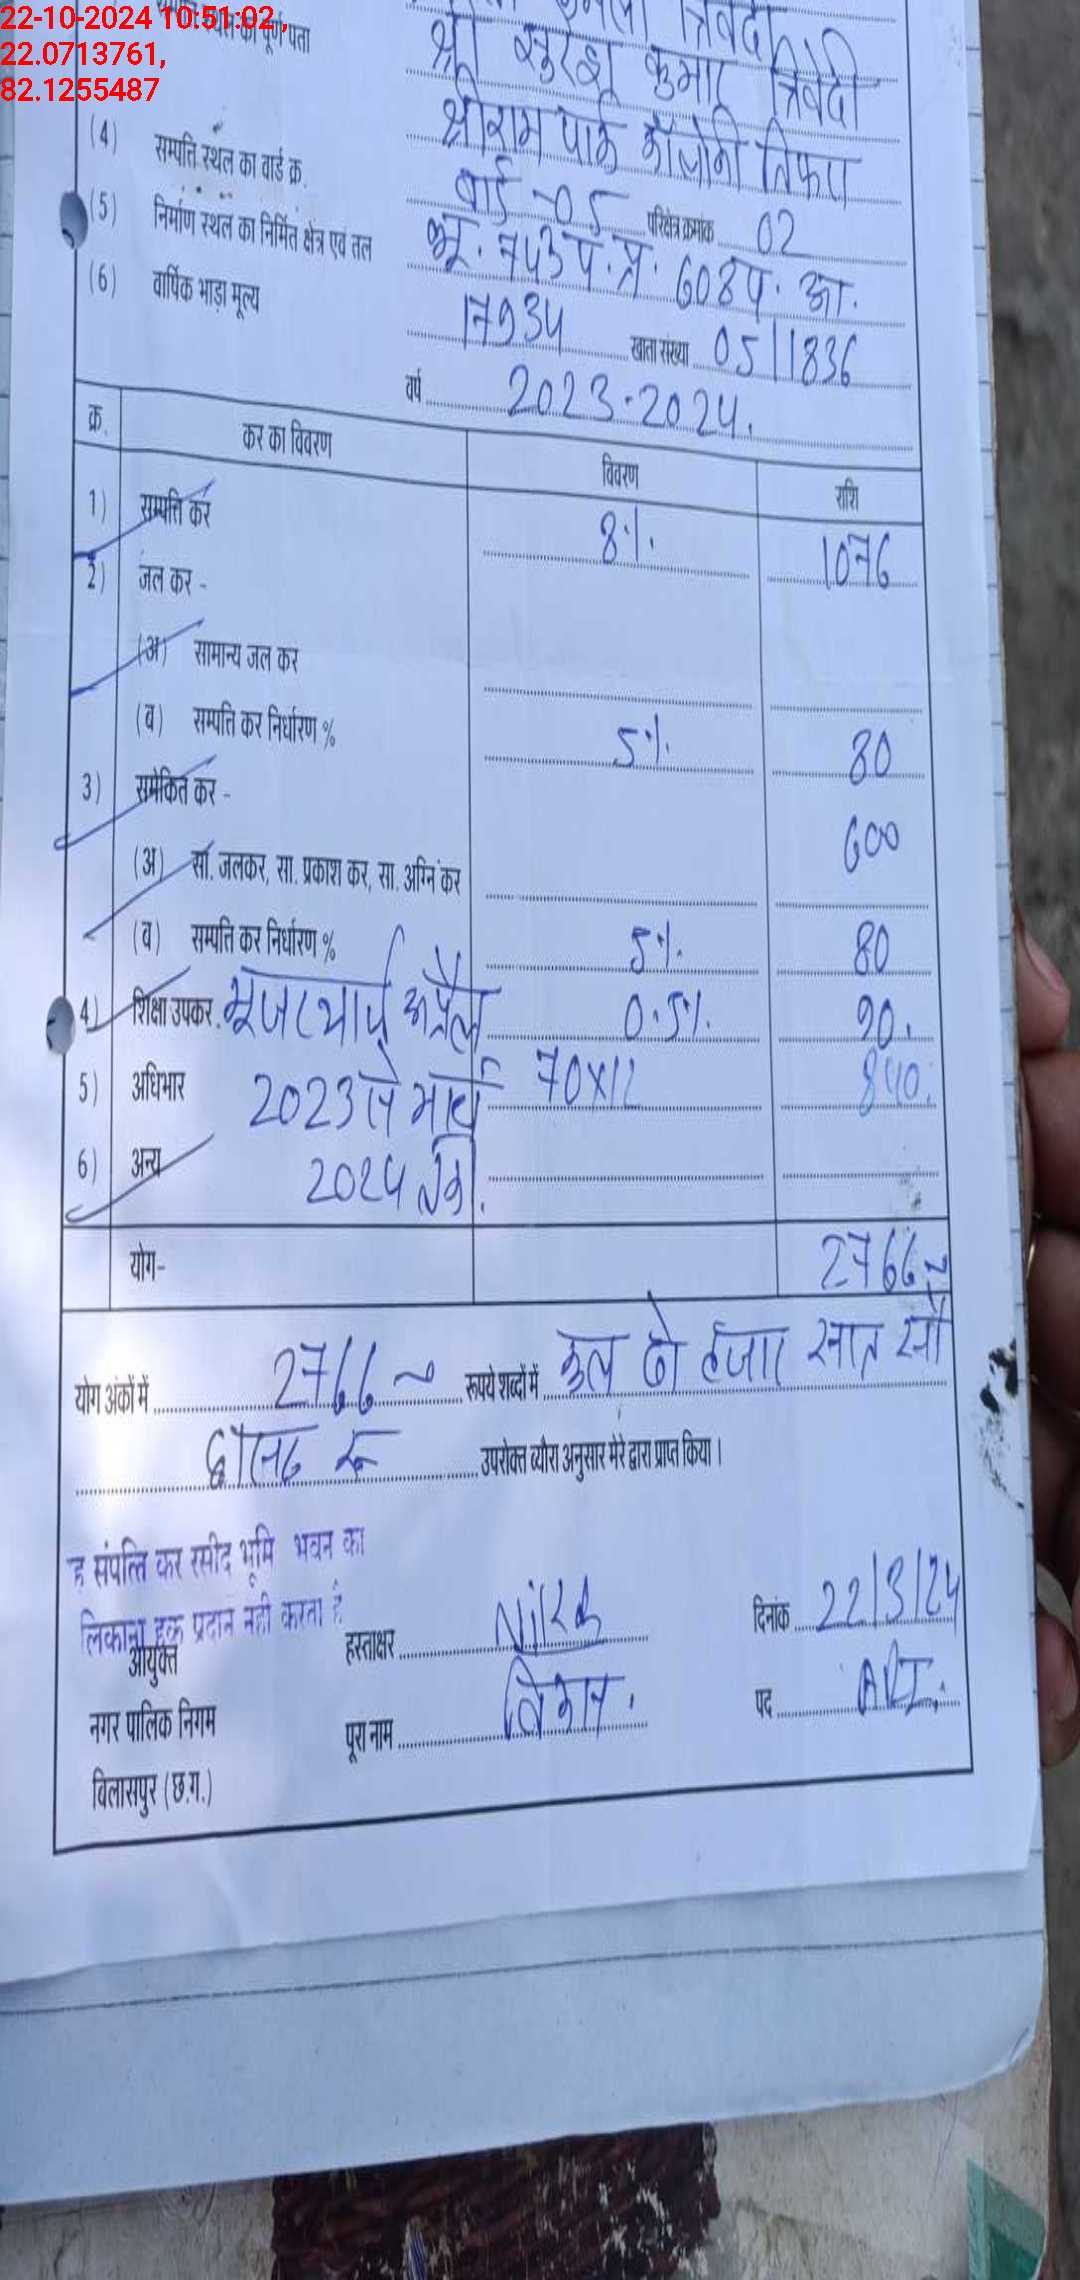 22-10-2024 10:51:02,
22.0713761,
82.1255487
का पूर्ण पता
श्री सुरेश कुमार त्रिवेदी
श्रीराम पार्क कॉलोनी तिफरा
(4) सम्पत्ति स्थल का वार्ड क्र. वार्ड -05 परिक्षेत्र क्रमांक 02
(5) निर्माण स्थल का निर्मित क्षेत्र एवं तल भू. 743 प. प्र. 608 प. आ.
(6) वार्षिक भाड़ा मूल्य 17934 खाता संख्या 05/1836
वर्ष 2023-2024.
क्र. कर का विवरण विवरण राशि
1) सम्पत्ति कर 8%. 1076
2) जल कर -
(अ) सामान्य जल कर
(ब) सम्पत्ति कर निर्धारण % 5%. 80
3) समेकित कर -
600
(अ) सा. जलकर, सा. प्रकाश कर, सा. अग्नि कर
(ब) सम्पत्ति कर निर्धारण % 5%. 80
4) शिक्षा उपकर. अप्रैल 0.5%. 90.
5) अधिभार 2023 से मार्च 70x12 840.
6) अन्य 2024 तक.
योग- 2766
योग अंकों में 2766 रूपये शब्दों में कुल दो हजार सात सौ
उपरोक्त ब्यौरा अनुसार मेरे द्वारा प्राप्त किया।
ह संपत्ति कर रसीद भूमि भवन का
लिकाना हक प्रदान नही करता है
आयुक्त
नगर पालिक निगम
बिलासपुर (छ.ग.)
हस्ताक्षर
दिनांक 22/3/24
पूरा नाम
पद ARI.